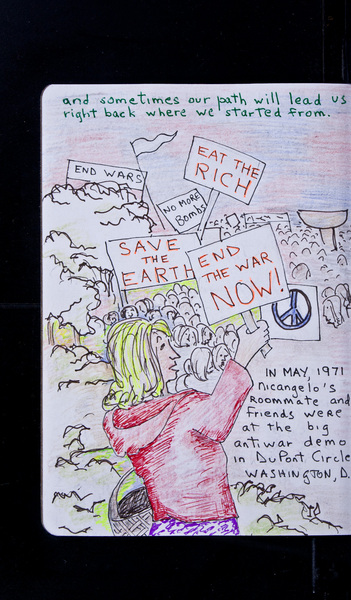 and sometimes our path will lead us
right back where we started from.
EAT THE
RICH
END WARS
NO MORE
Bombs
SAVE
THE
EARTH
END
THE WAR
NOW!
IN MAY, 1971
Nicangelo's
Roommate and
friends were
at the big
antiwar demo
in DuPont Circle
WASHINGTON, D.